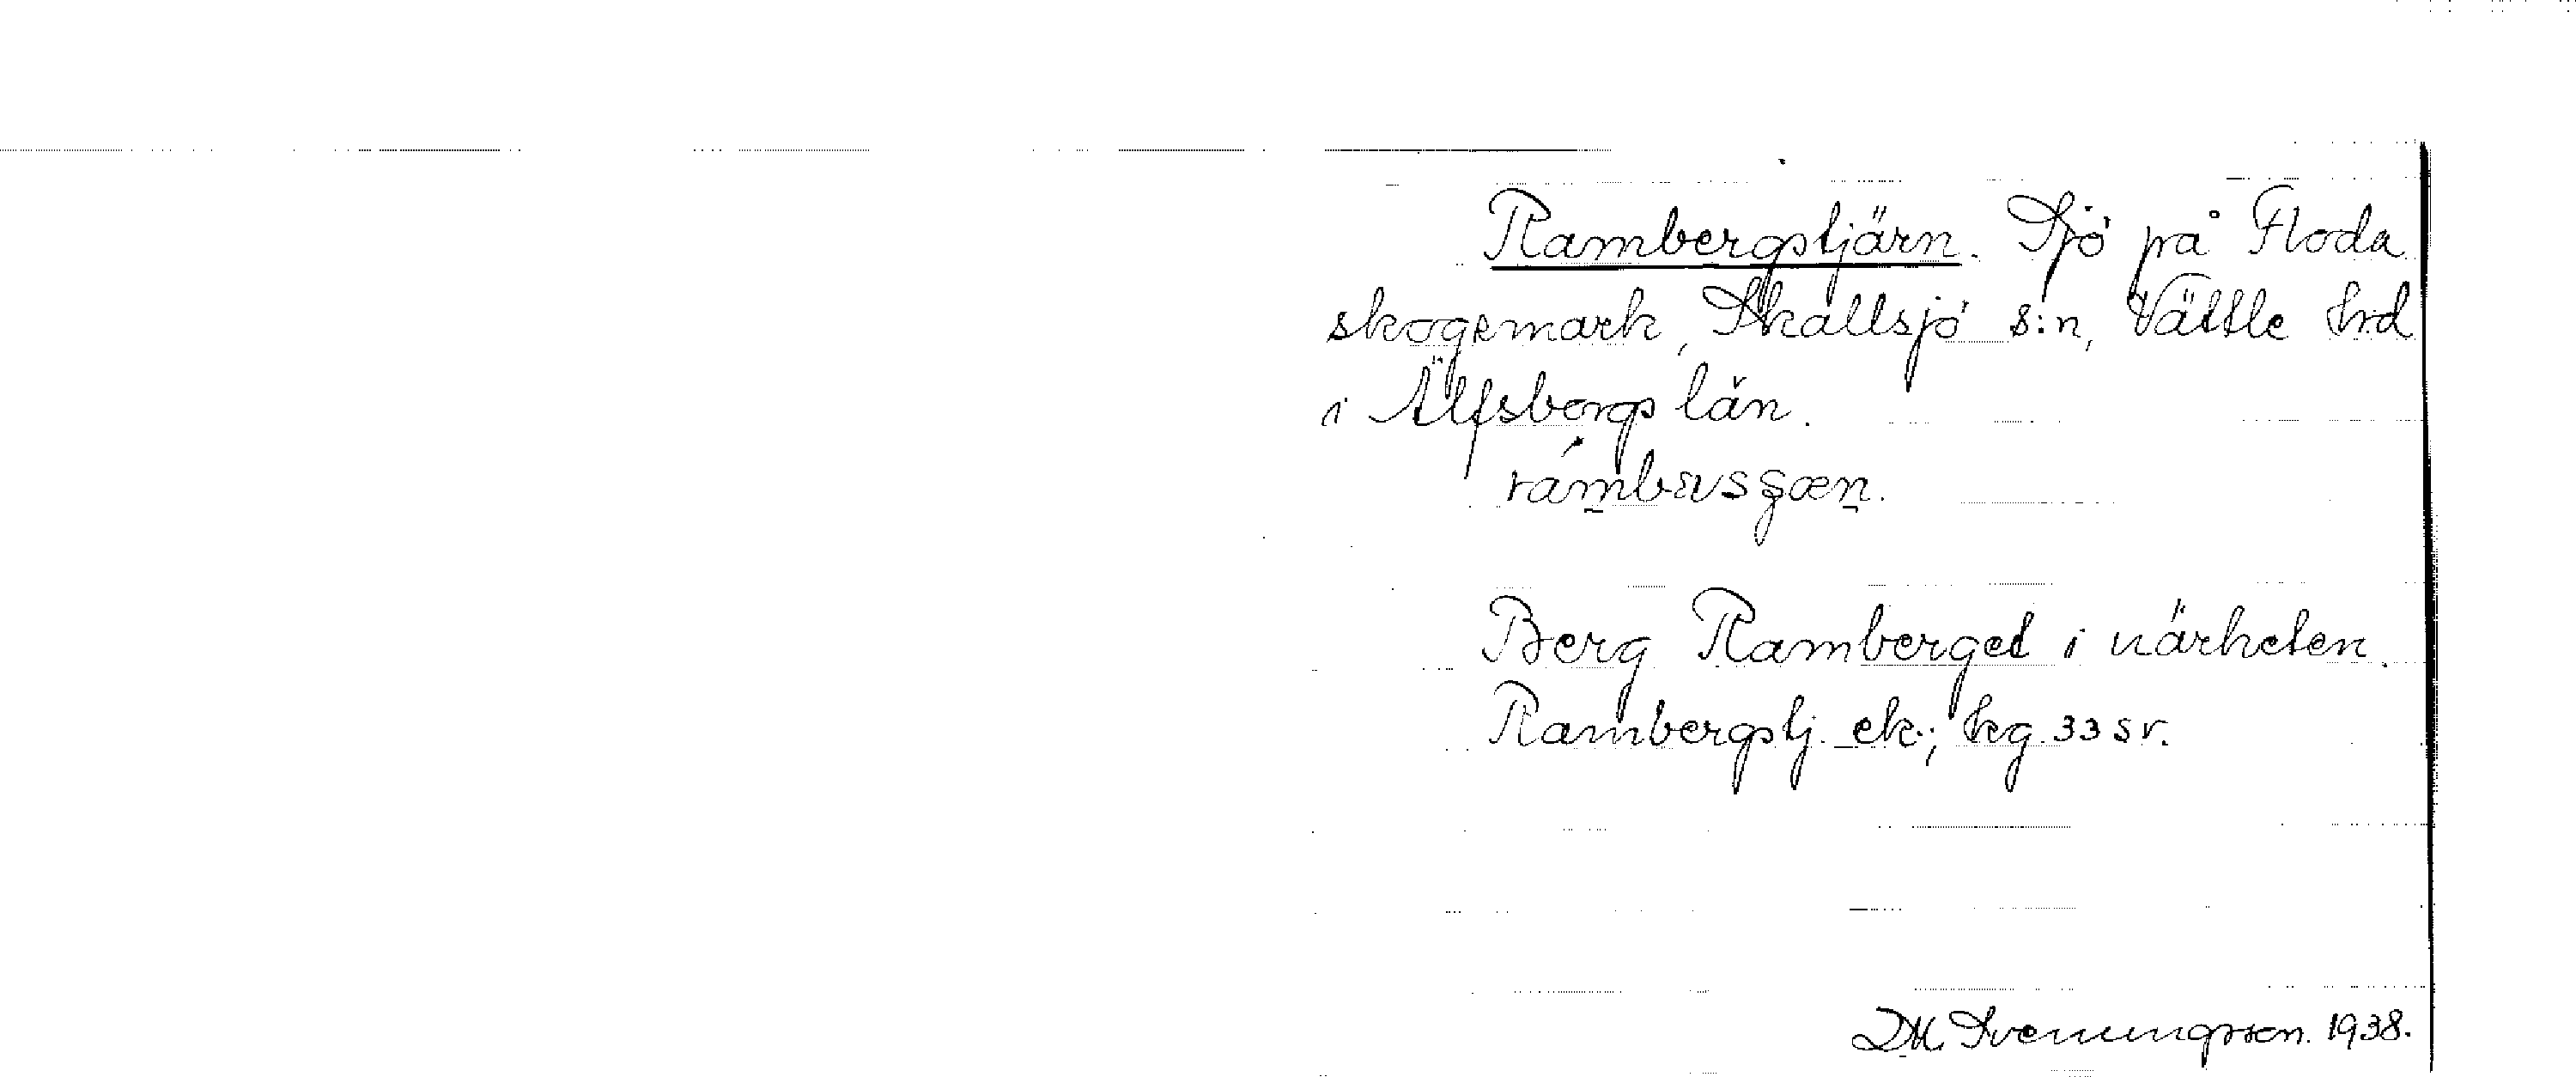 Rambergstjärn. Sjö på Floda
skogsmark, Skallsjö s:n, Vättle hrd
i Älfsborgs län.
Berg Ramberget i närheten.
Rambergstj. ek.; hg. 33 sv.
D.M. Svenungsson. 1938.